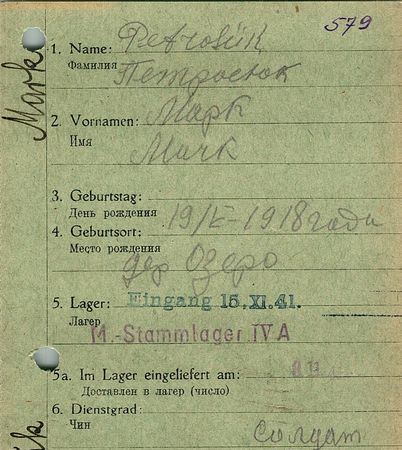 579
1. Name: Petrosük
Фамилия Петросюк
Mark
2. Vornamen: Марк
Имя
Mark
3. Geburtstag:
День рождения 19/ -1918 года
4. Geburtsort:
Место рождения
дер Озеро
5. Lager: Eingang 15. XI. 41.
Лагерь
M.-Stammlager IV A
5a. Im Lager eingeliefert am:
Доставлен в лагерь (число)
6. Dienstgrad:
Чин
Солдат